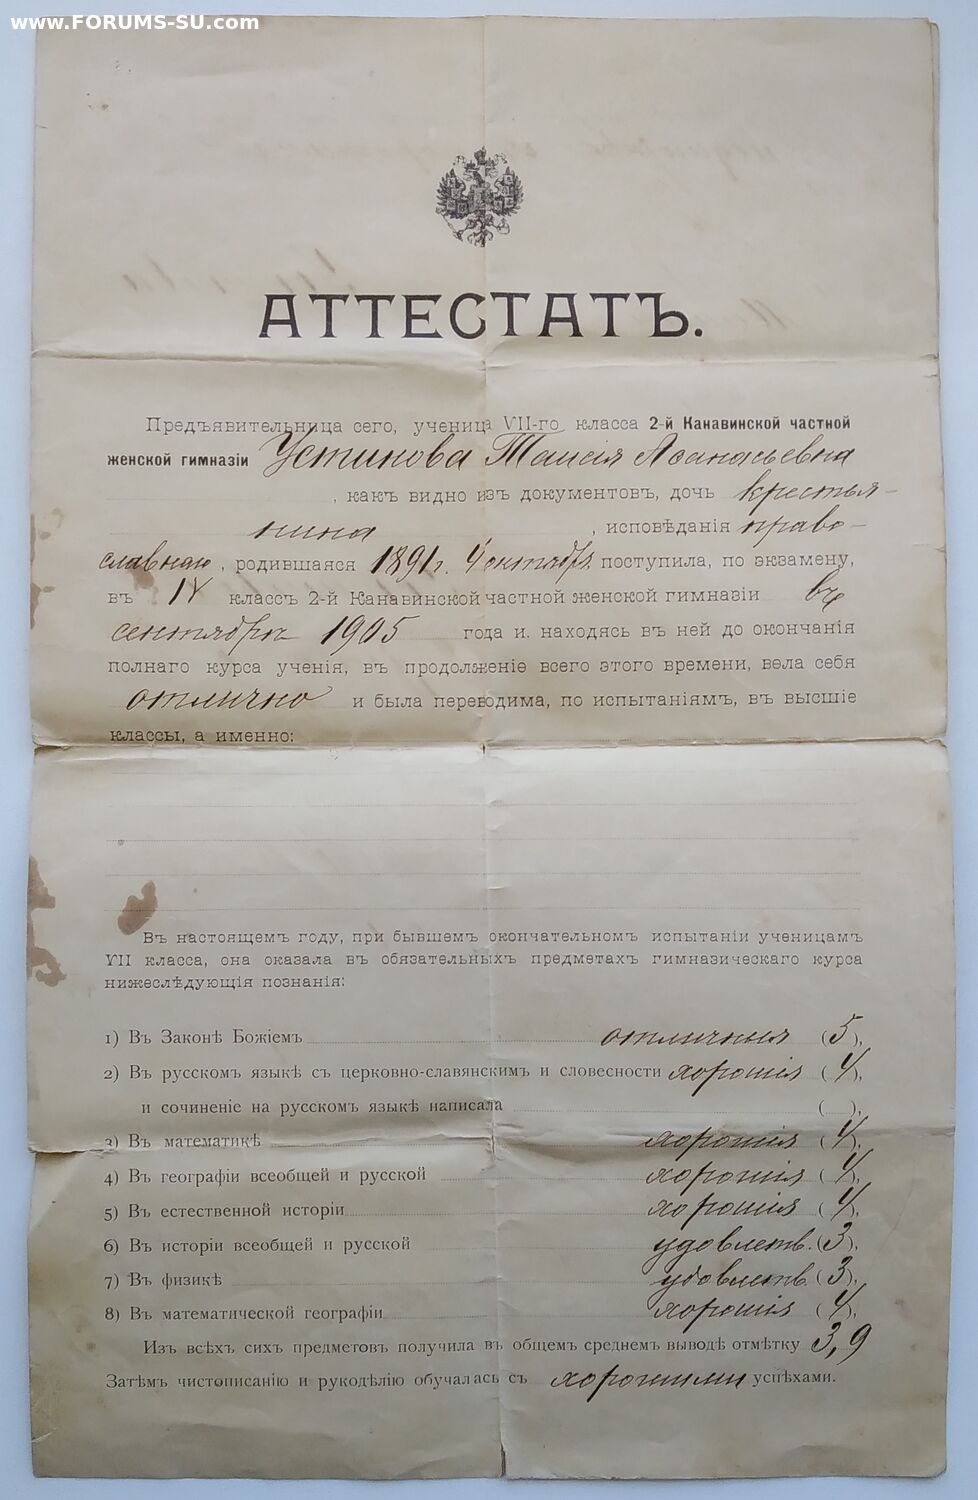 www.FORUMS-SU.com
АТТЕСТАТЪ.
Предъявительница сего, ученица VII-го класса 2-й Канавинской частной
женской гимназіи Устинова Таисія Аѳанасьевна
, какъ видно изъ документовъ, дочь крестья-
нина , исповѣданія право-
славнаго, родившаяся 1891 г. 4 сентября поступила, по экзамену,
въ IV классъ 2-й Канавинской частной женской гимназіи въ
сентябрѣ 1905 года и. находясь въ ней до окончанія
полнаго курса ученія, въ продолженіе всего этого времени, вела себя
отлично и была переводима, по испытаніямъ, въ высшіе
классы, а именно:
Въ настоящемъ году, при бывшемъ окончательномъ испытаніи ученицамъ
VII класса, она оказала въ обязательныхъ предметахъ гимназическаго курса
нижеслѣдующія познанія:
1) Въ Законѣ Божіемъ отличныя (5),
2) Въ русскомъ языкѣ съ церковно-славянскимъ и словесности хорошія (4),
и сочиненіе на русскомъ языкѣ написала ( ),
3) Въ математикѣ хорошія (4),
4) Въ географіи всеобщей и русской хорошія (4),
5) Въ естественной исторіи хорошія (4),
6) Въ исторіи всеобщей и русской удовлетв. (3),
7) Въ физикѣ удовлетв. (3),
8) Въ математической географіи хорошія (4),
Изъ всѣхъ сихъ предметовъ получила въ общемъ среднемъ выводѣ отмѣтку 3,9
Затѣмъ чистописанію и рукодѣлію обучалась съ хорошими успѣхами.